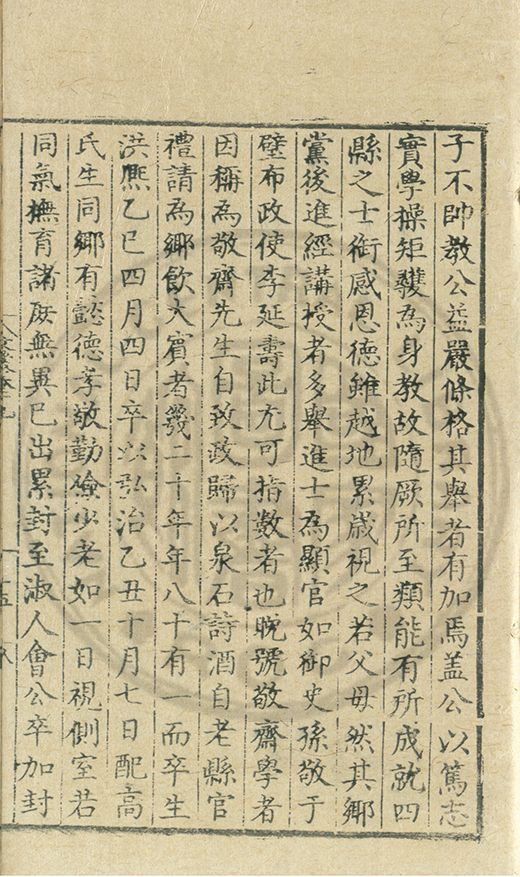 子不帥教公益嚴條格其舉者有加焉盖公以篤志
實學操矩矱為身教故隨厥所至類能有所成就四
縣之士銜感恩德雖越地累歲視之若父母然其鄉
黨後進經講授者多舉進士為顯官如御史孫敬于
璧布政使李延壽此尤可指數者也晚號敬齋學者
因稱為敬齋先生自致政歸以泉石詩酒自老縣官
禮請為鄉飲大賓者幾二十年年八十有一而卒生
洪熈乙巳四月四日卒以弘治乙丑十月七日配高
氏生同鄉有懿德孝敬勤儉少老如一日視側室若
同氣撫育諸庶無異已出累封至淑人會公卒加封